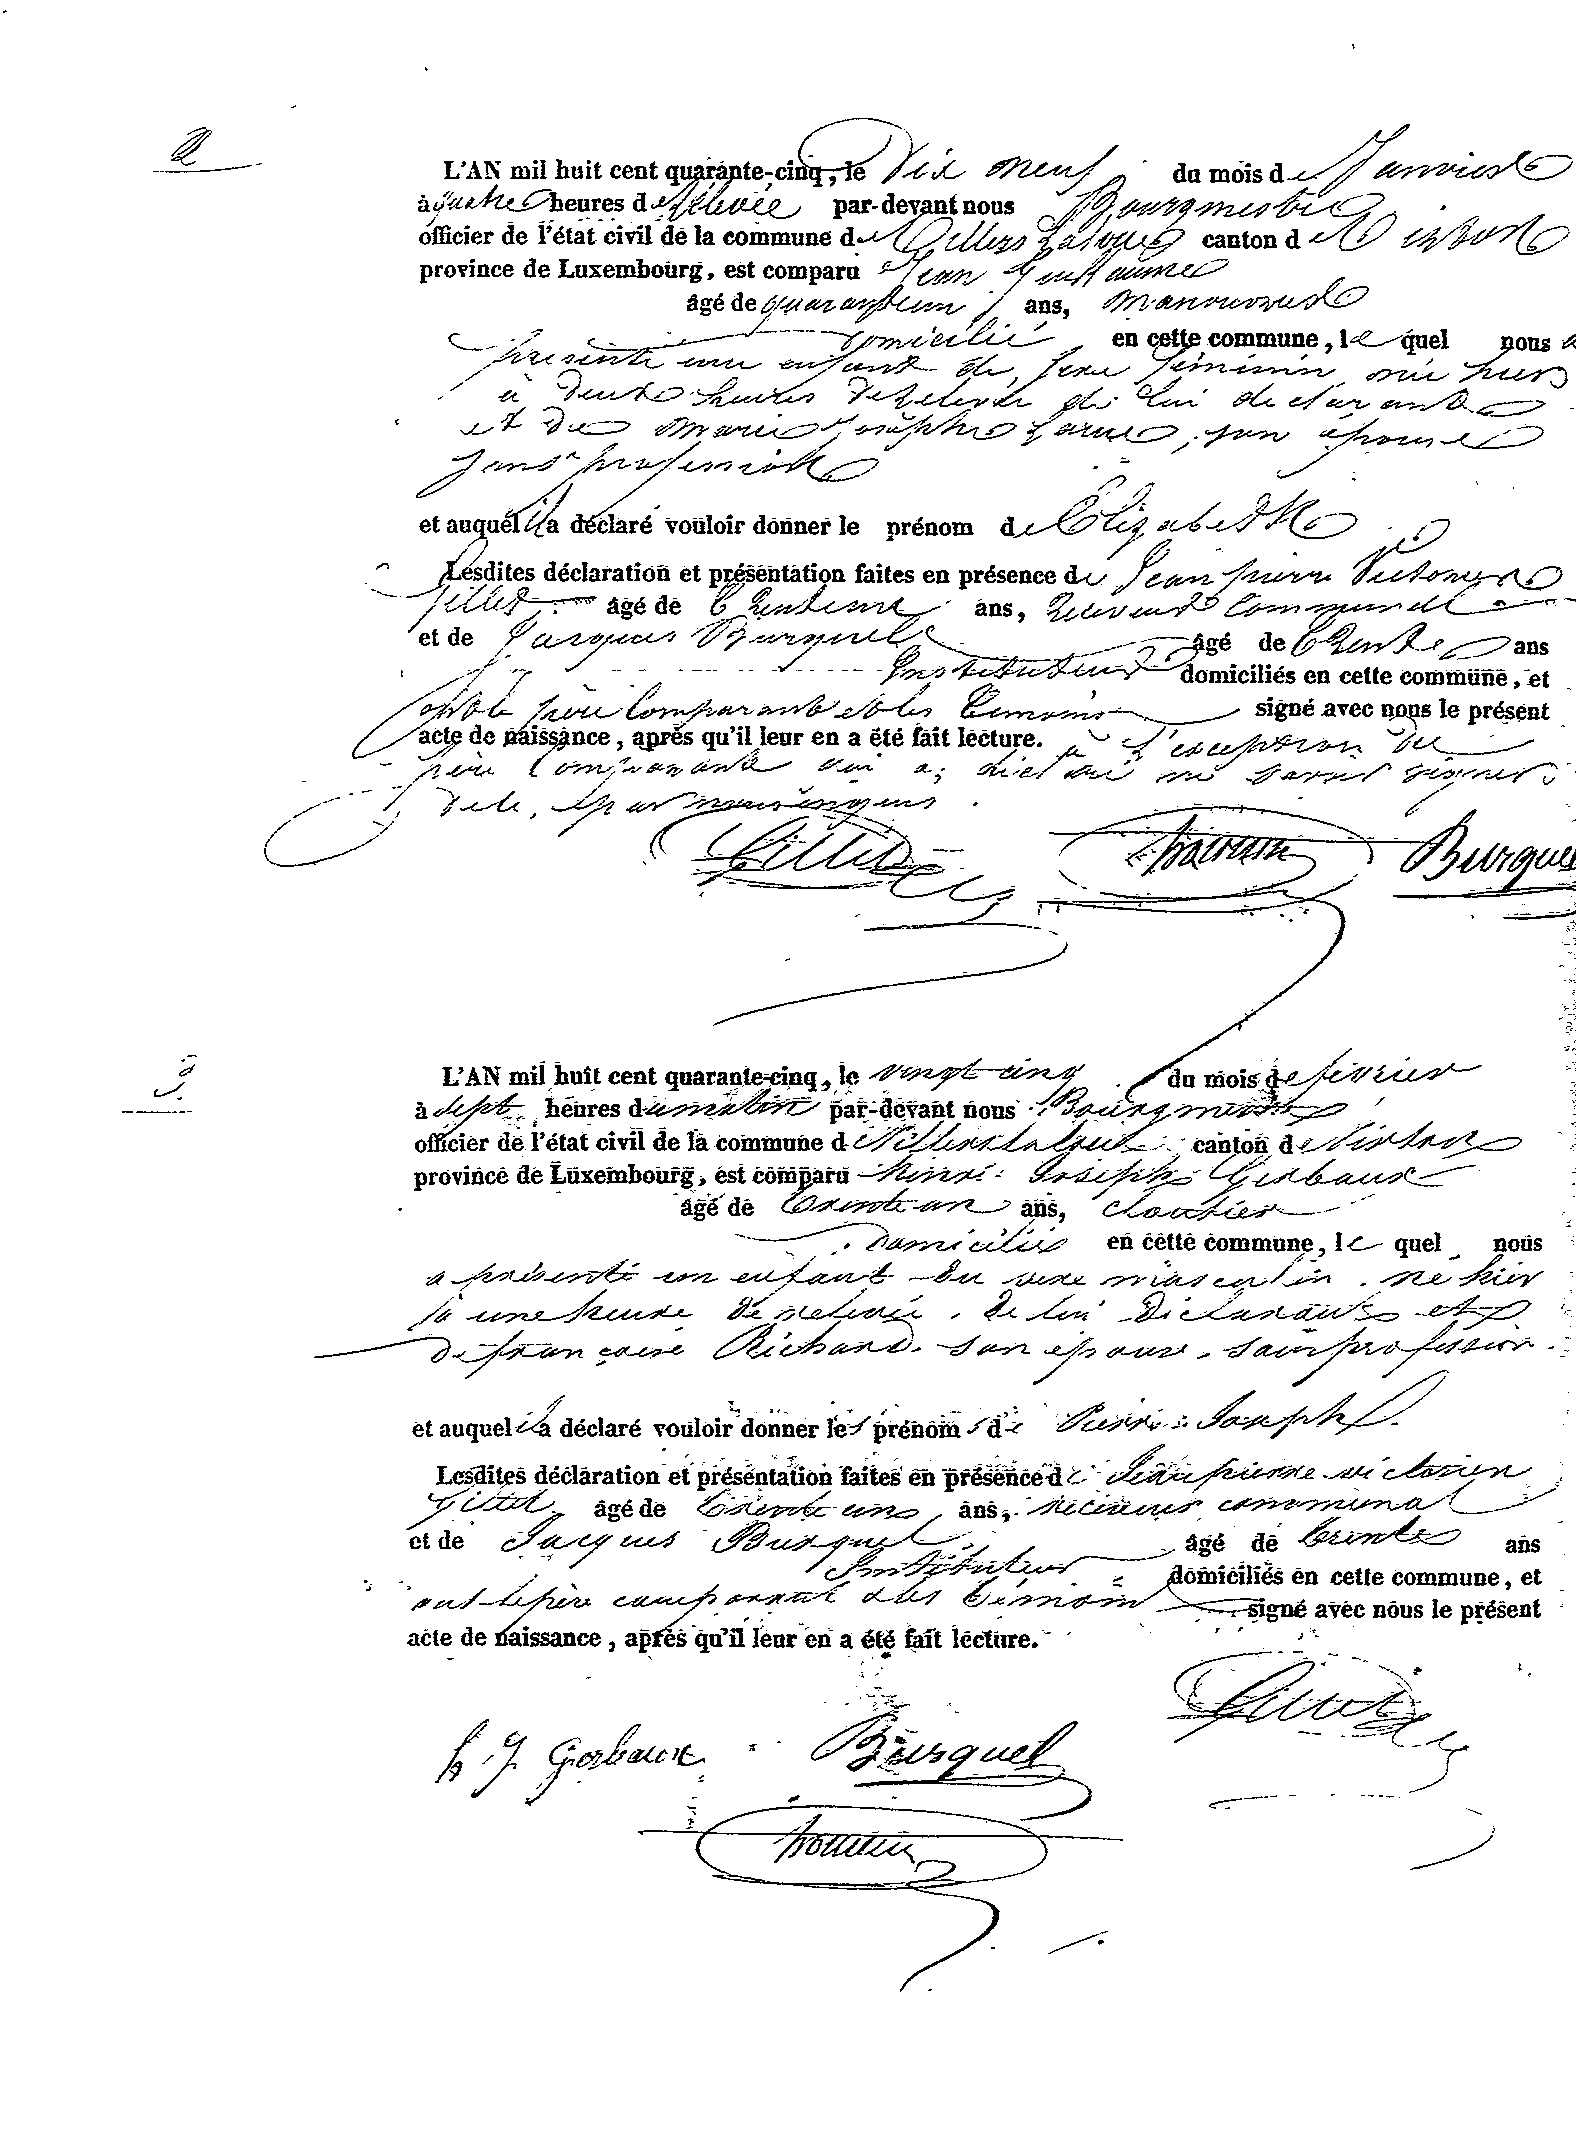 2
L'AN mil huit cent quarante-cinq, le Dix neuf du mois de Janvier
à quatre heures de relevée par-devant nous Bourgmestre
officier de l'état civil de la commune de Villers Laloue canton de Virton
province de Luxembourg, est comparu Jean Guillaume
âgé de quarante un ans, manouvrier
domicilié en cette commune, le quel nous a
présenté une enfant de sexe féminin née hier
à deux heures de relevée de lui déclarant
et de Marie Josèphe son épouse
sans profession
et auquel il a déclaré vouloir donner le prénom de Elizabeth
Lesdites déclaration et présentation faites en présence de Jean pierre Victorien
Gillet âgé de trente un ans, receveur communal
et de Jacques Burquel âgé de trente ans
Instituteur domiciliés en cette commune, et
ont le père comparant et les témoins signé avec nous le présent
acte de naissance, après qu'il leur en a été fait lecture. à l'exception du
père comparant qui a déclaré ne savoir signer
de ce, par nous
Gillet Burquel
3.
L'AN mil huit cent quarante-cinq, le vingt cinq du mois de février
à sept heures du matin par-devant nous Bourgmestre
officier de l'état civil de la commune de Villers laloue canton de Virton
province de Luxembourg, est comparu Henri Joseph Gerbaux
âgé de trente un ans, cloutier
domicilié en cette commune, le quel nous
a présenté un enfant du sexe masculin. né hier
à une heure de relevée, de lui déclarant et
de françoise Richard. son épouse. sans profession.
et auquel il a déclaré vouloir donner les prénoms de Pierre Joseph.
Lesdites déclaration et présentation faites en présence de Jean pierre victorien
Gillet âgé de trente uns ans, receveur communal
et de Jacques Burquel âgé de trente ans
Instituteur domiciliés en cette commune, et
ont le père comparant et les témoins signé avec nous le présent
acte de naissance, après qu'il leur en a été fait lecture.
Gillet
h. J. Gerbaux Burquel